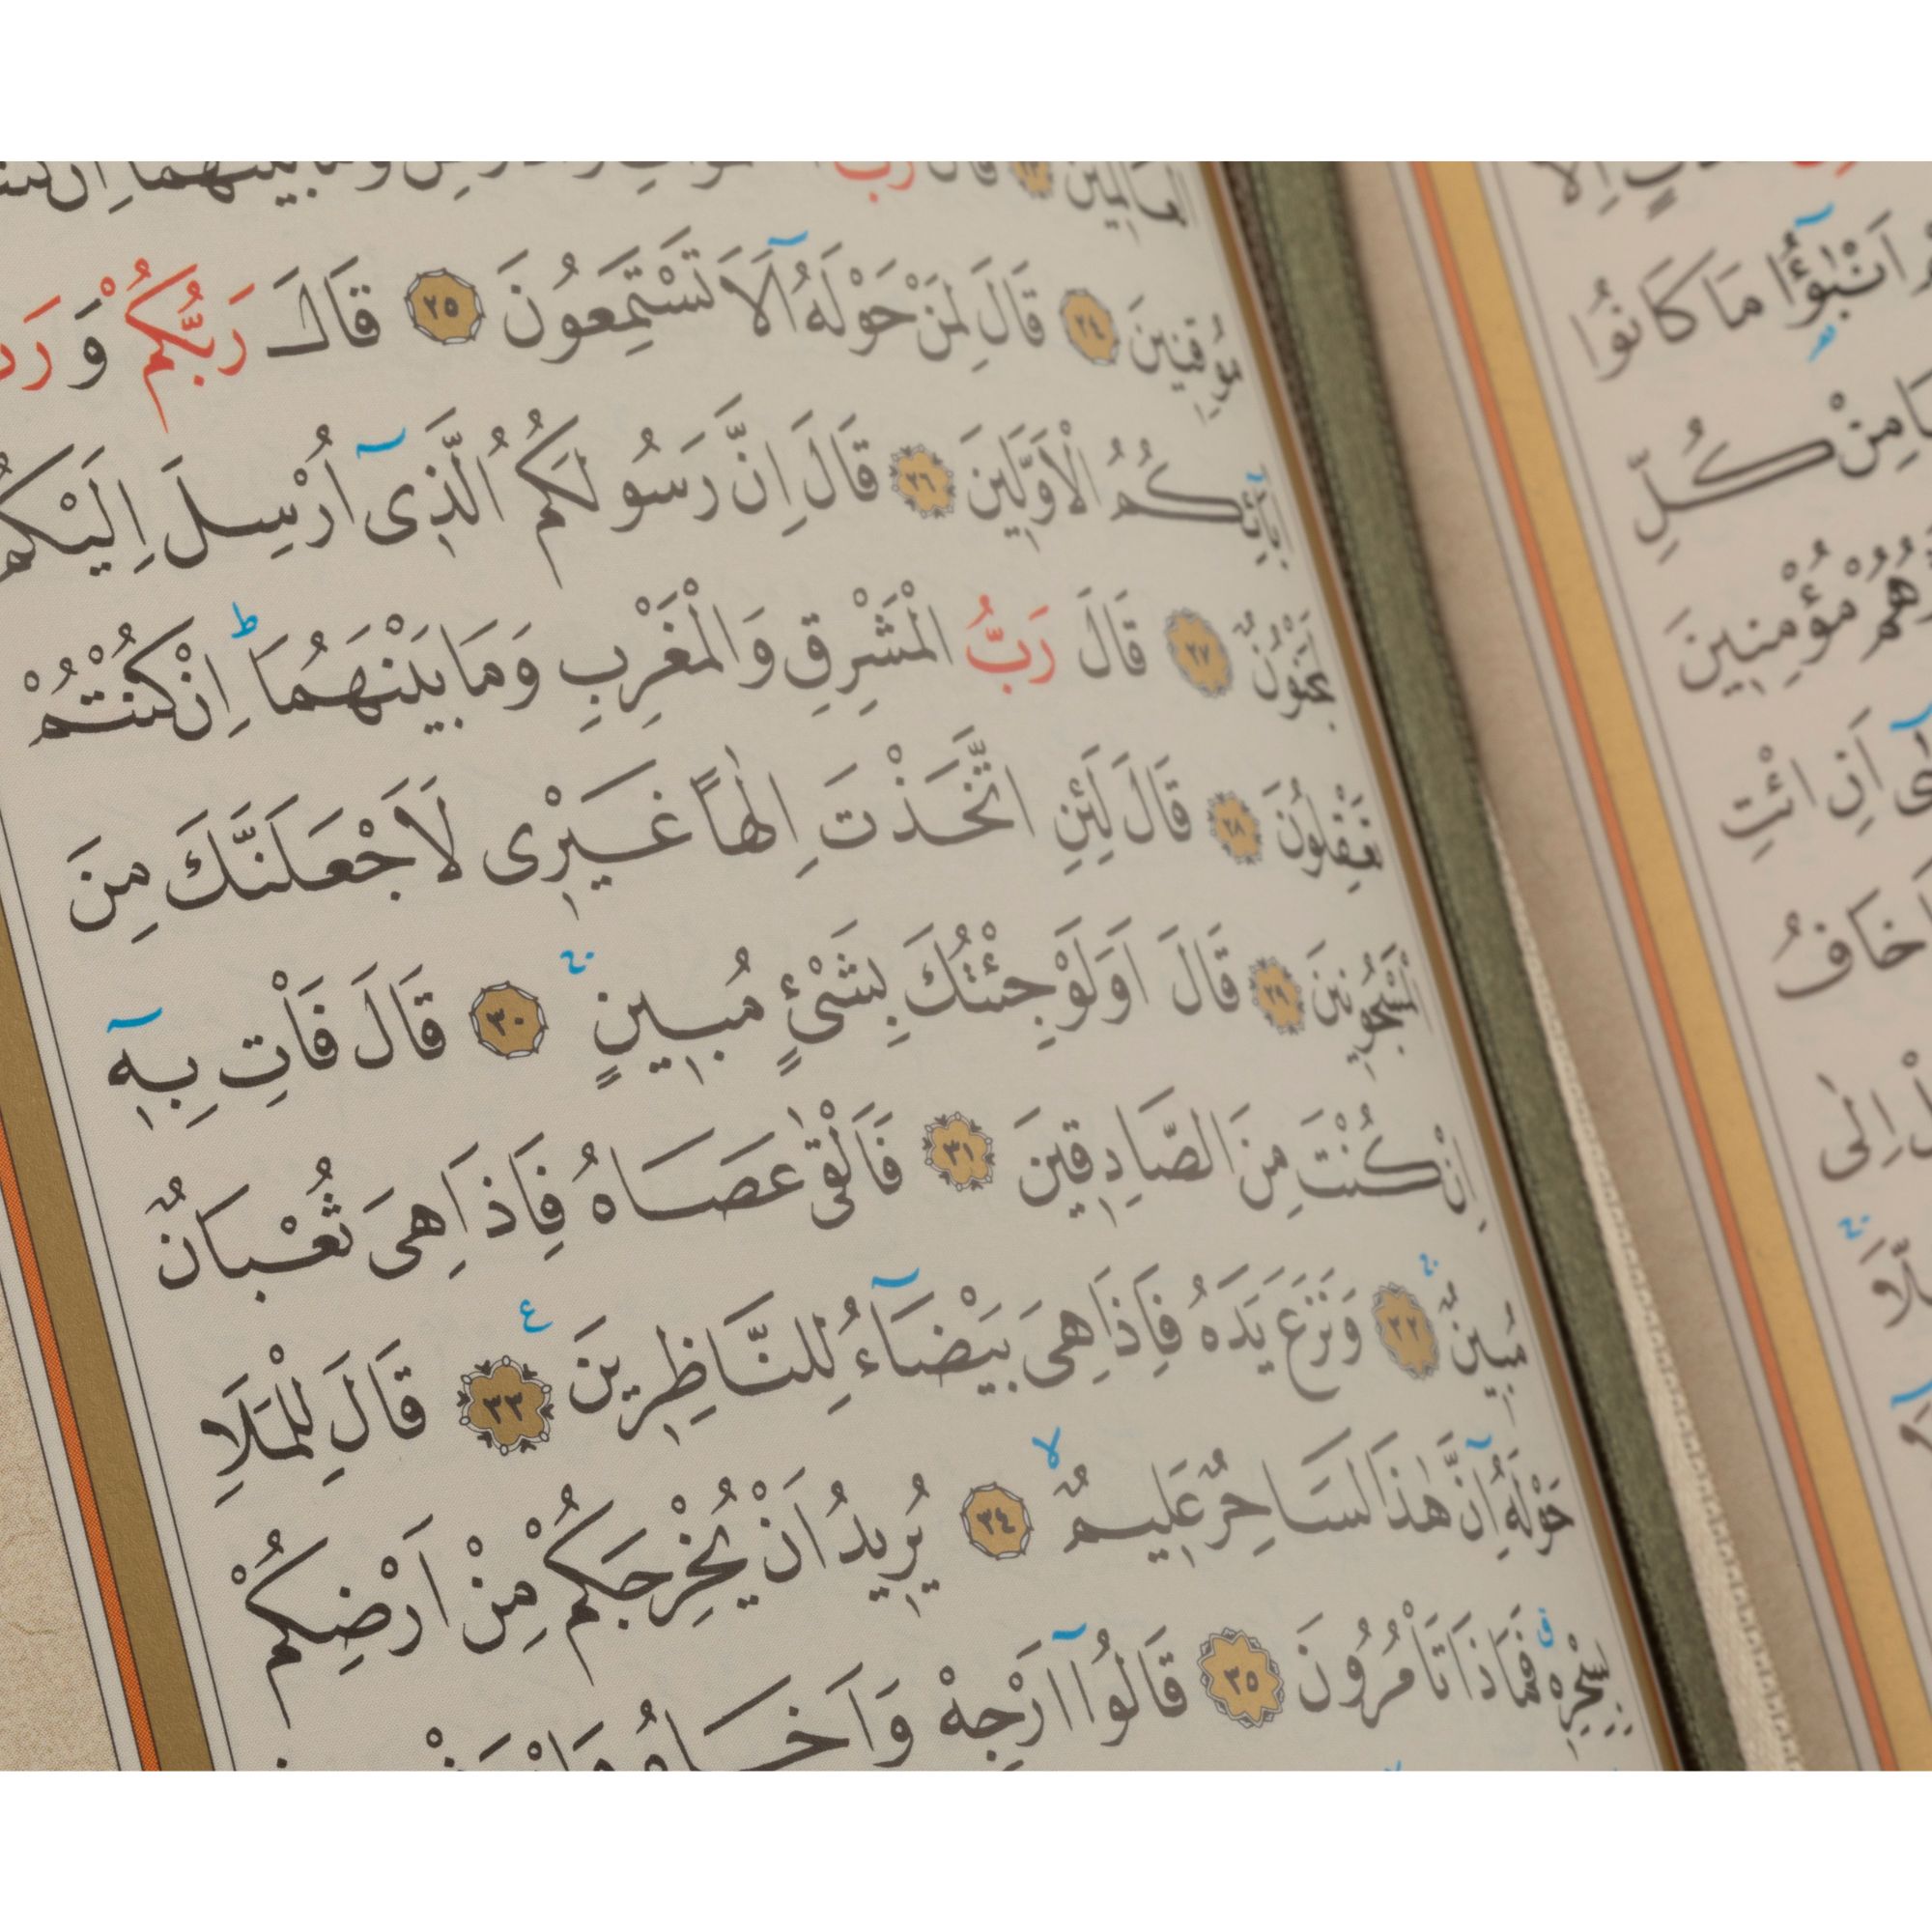 اَنْبٰٓؤُ۬ا مَا كَانُوا
مِنْ كُلِّ
مُؤْمِنِينَ
اَنِ ائْتِ
اَخَافُ
اِلٰى
الْعَالَمِينَ ٢٣ قَالَ رَبُّ وَمَا بَيْنَهُمَا اِنْ
مُوقِنِينَ ٢٤ قَالَ لِمَنْ حَوْلَهُٓ اَلَا تَسْتَمِعُونَ ٢٥ قَالَ رَبُّكُمْ وَ
اٰبَٓائِكُمُ الْاَوَّلِينَ ٢٦ قَالَ اِنَّ رَسُولَكُمُ الَّذِىٓ اُرْسِلَ اِلَيْكُمْ
لَمَجْنُونٌ ٢٧ قَالَ رَبُّ الْمَشْرِقِ وَالْمَغْرِبِ وَمَا بَيْنَهُمَاۜ اِنْ كُنْتُمْ
تَعْقِلُونَ ٢٨ قَالَ لَئِنِ اتَّخَذْتَ اِلٰهًا غَيْرِى لَاَجْعَلَنَّكَ مِنَ
الْمَسْجُونِينَ ٢٩ قَالَ اَوَلَوْ جِئْتُكَ بِشَىْءٍ مُبِينٍ ٣٠ قَالَ فَاْتِ بِهِٓ
اِنْ كُنْتَ مِنَ الصَّادِقِينَ ٣١ فَاَلْقٰى عَصَاهُ فَاِذَا هِىَ ثُعْبَانٌ
مُبِينٌ ٣٢ وَنَزَعَ يَدَهُ فَاِذَا هِىَ بَيْضَٓاءُ لِلنَّاظِرِينَ ع ٣٣ قَالَ لِلْمَلَاِ
حَوْلَهُٓ اِنَّ هٰذَا لَسَاحِرٌ عَلِيمٌۙ ٣٤ يُرِيدُ اَنْ يُخْرِجَكُمْ مِنْ اَرْضِكُمْ
بِسِحْرِهِ فَمَاذَا تَاْمُرُونَ ٣٥ قَالُٓوا اَرْجِهْ وَاَخَاهُ